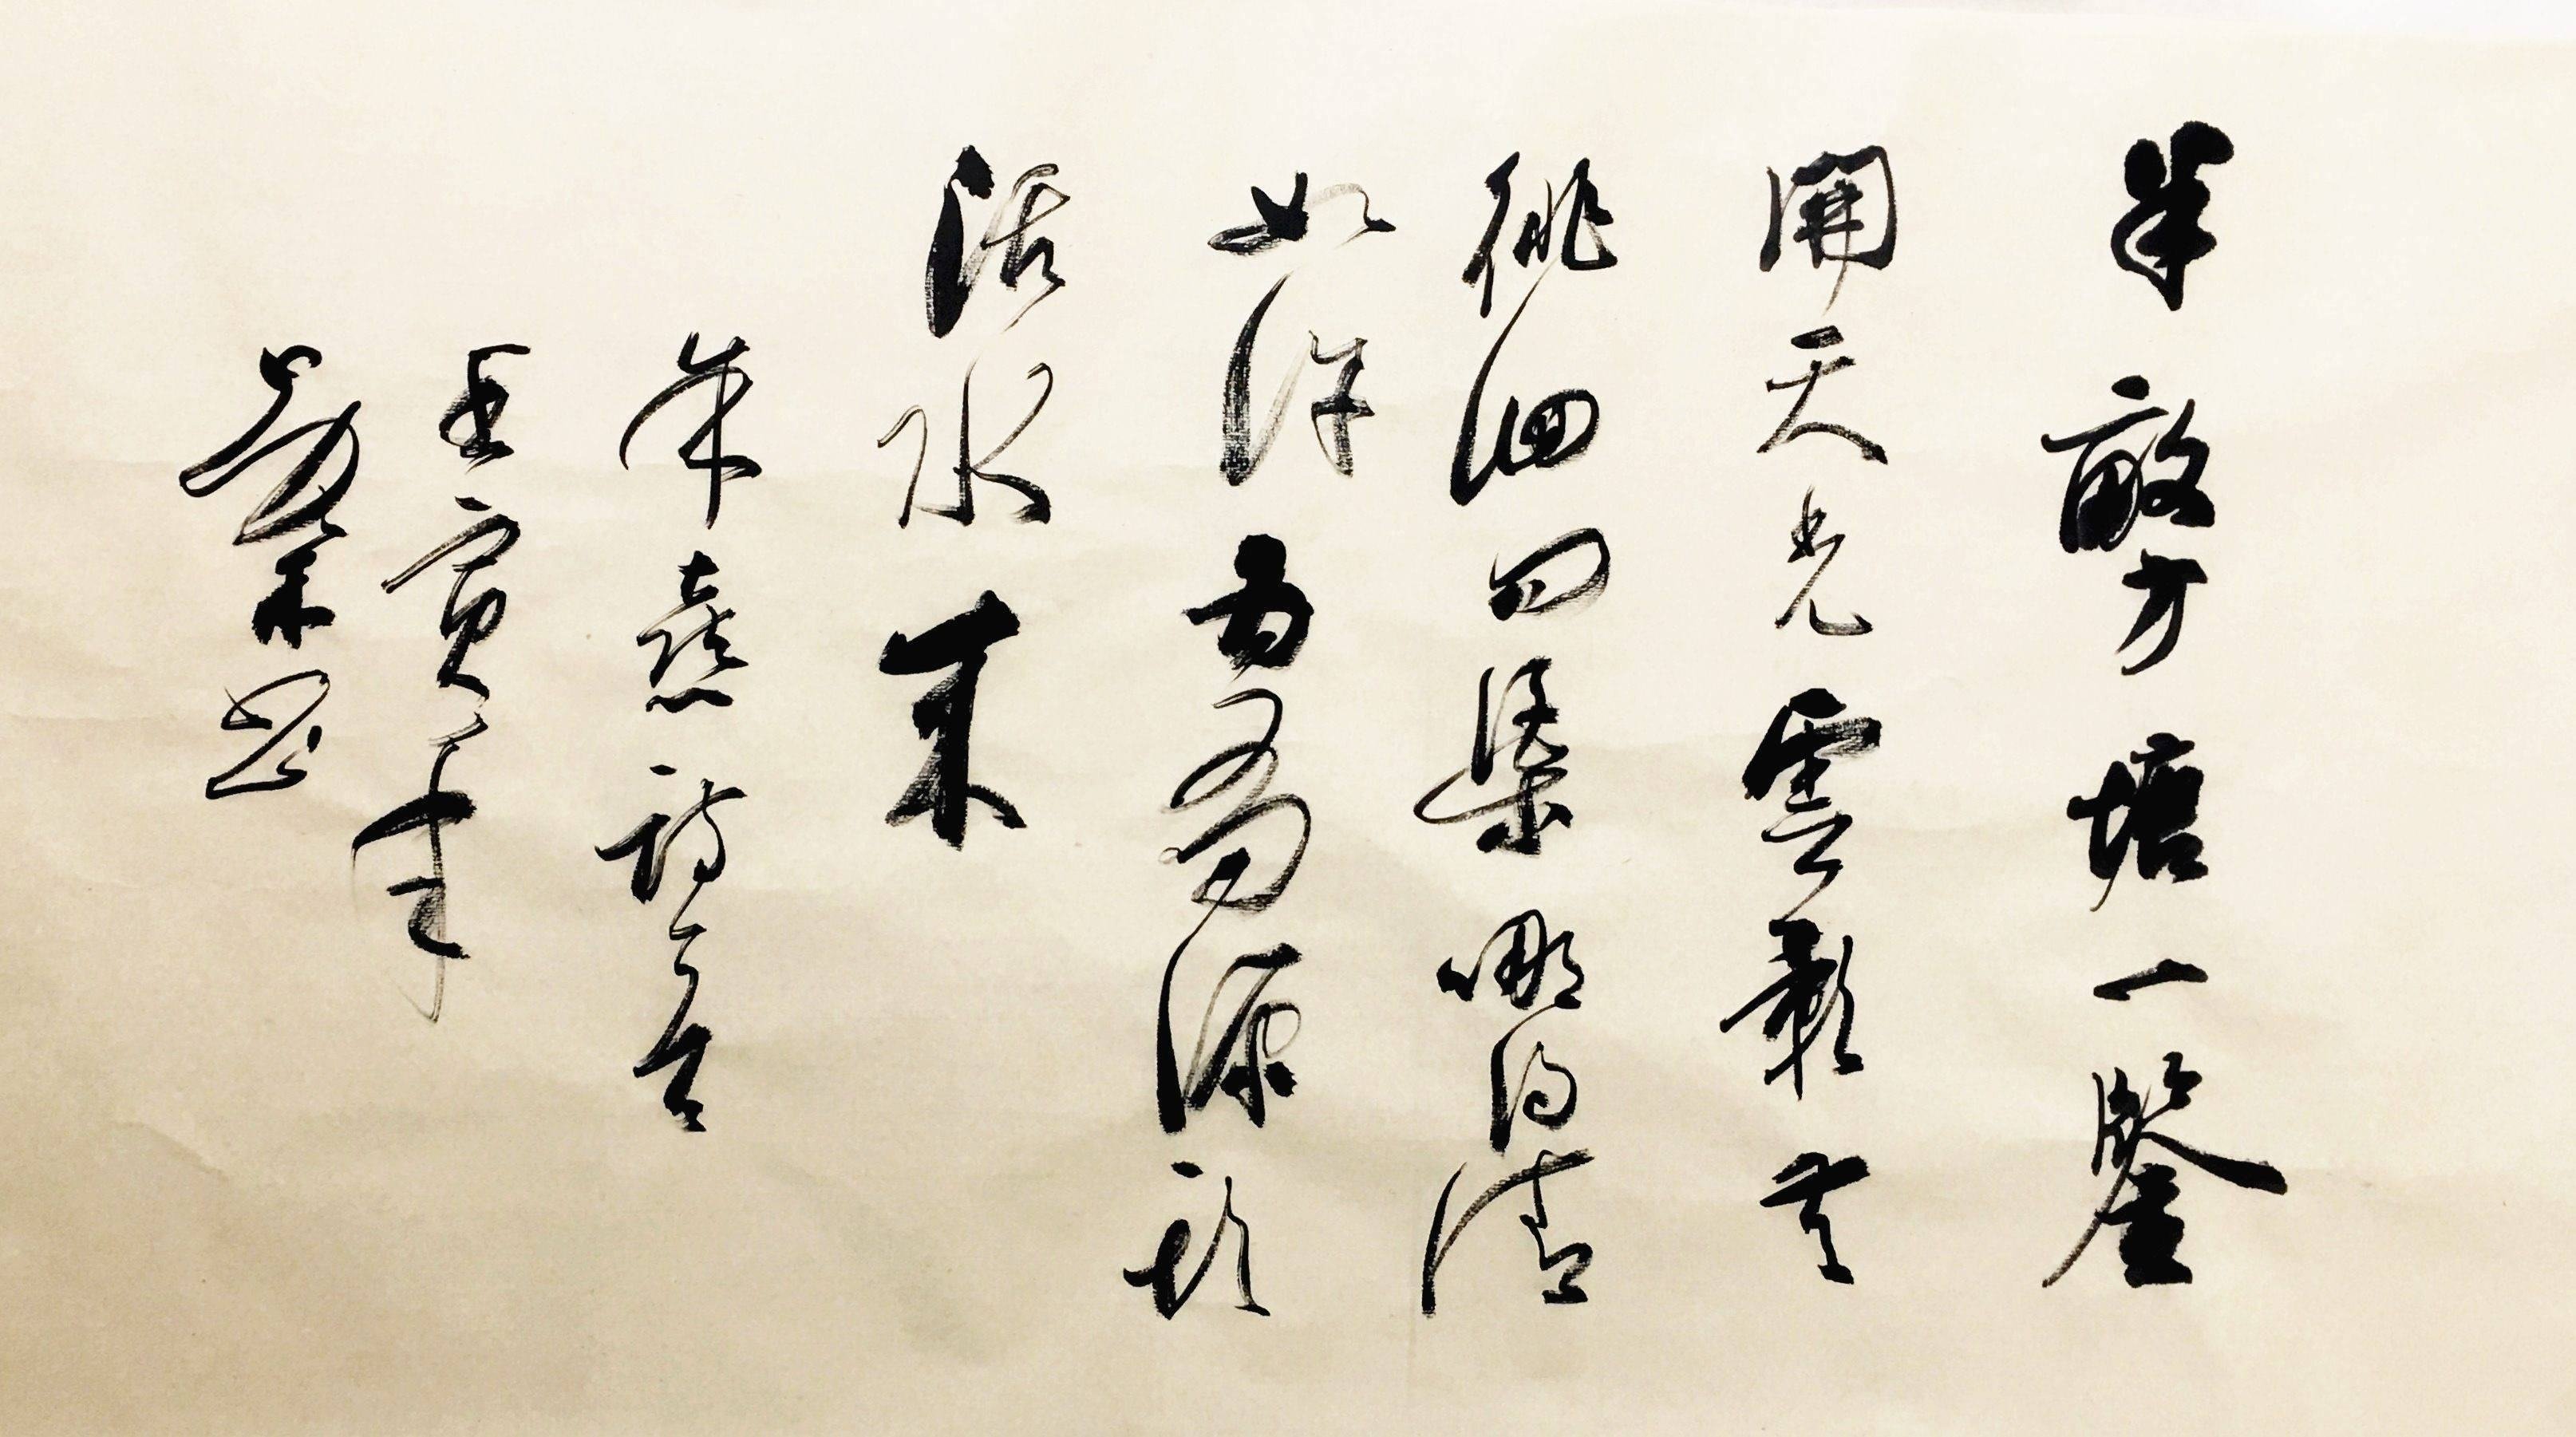 半畝方塘一鑒
開天光雲影共
徘徊問渠哪得清
如許為有源頭
活水來
朱熹詩意
壬寅年